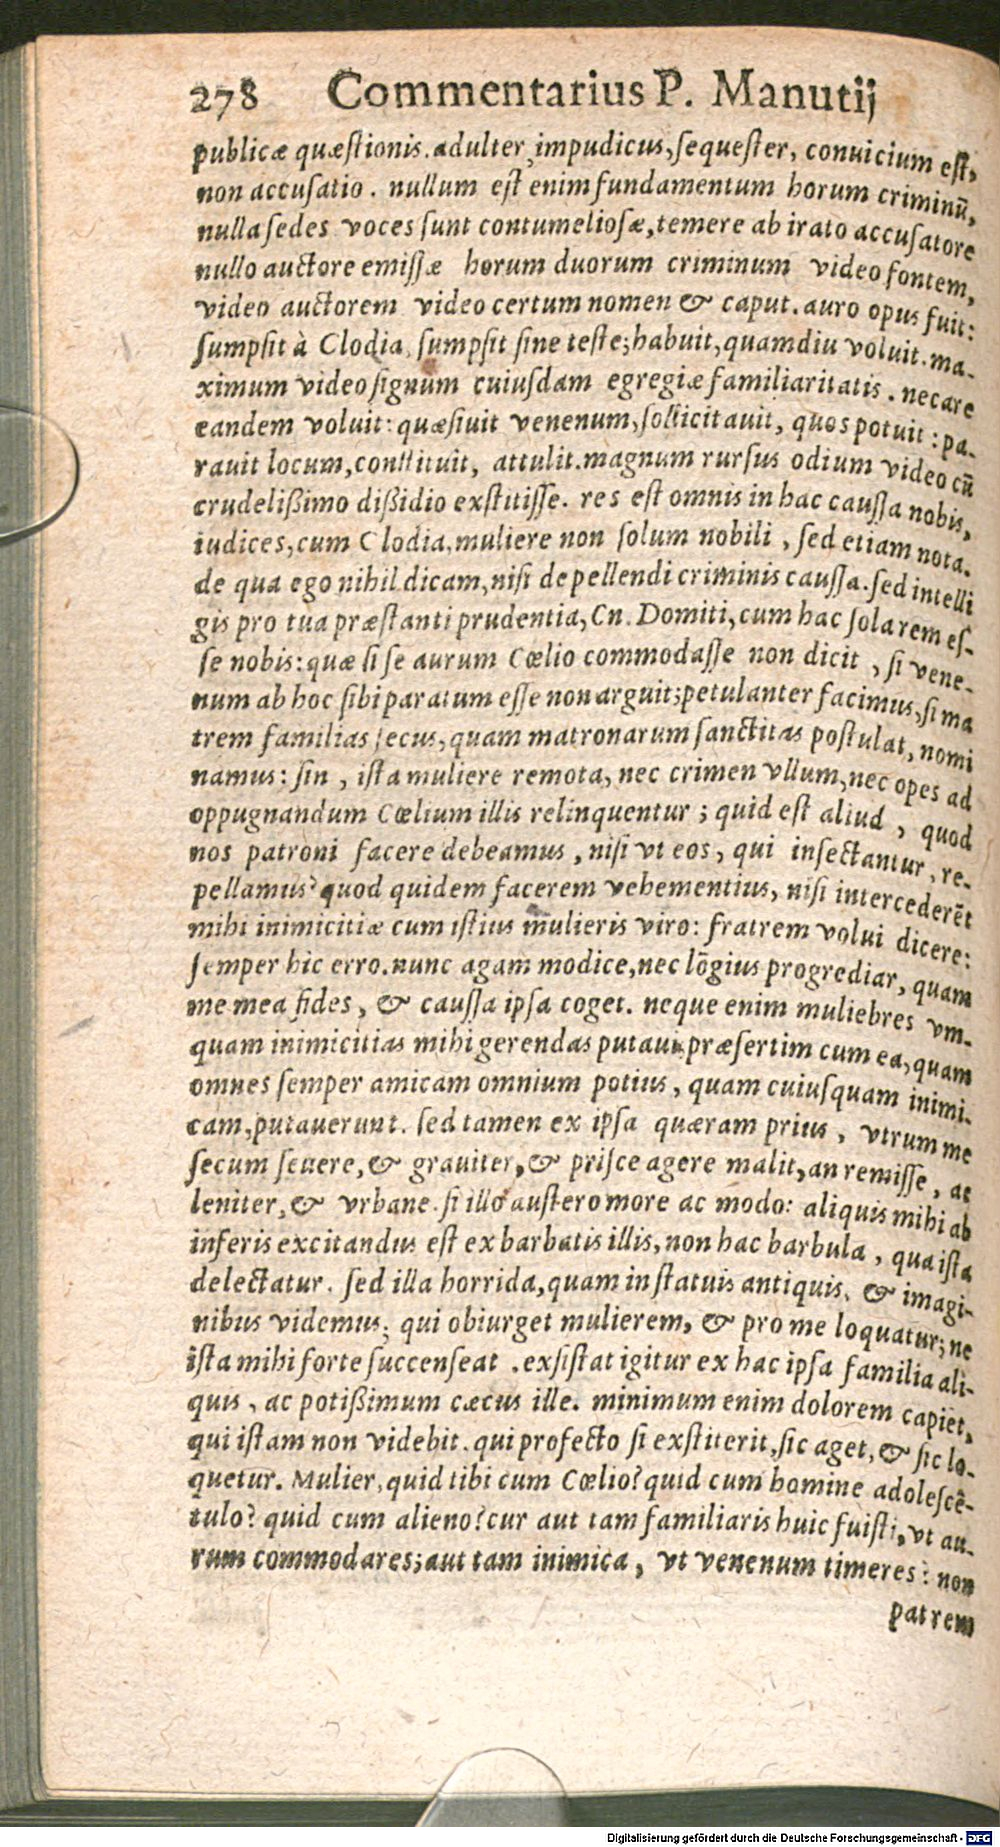 278 Commentarius P. Manutij
publicæ quæstionis. adulter, impudicus, sequester, conuicium est,
non accusatio. nullum est enim fundamentum horum criminū,
nulla sedes voces sunt contumeliosæ, temere ab irato accusatore
nullo auctore emissæ horum duorum criminum video fontem,
video auctorem video certum nomen & caput. auro opus fuit:
sumpsit à Clodia, sumpsit sine teste; habuit, quamdiu voluit. ma-
ximum video signum cuiusdam egregiæ familiaritatis. necare
eandem voluit: quæsiuit venenum, sollicitauit, quos potuit: pa-
rauit locum, constituit, attulit. magnum rursus odium video cū
crudelißimo dißidio exstitisse. res est omnis in hac caussa nobis,
iudices, cum Clodia, muliere non solum nobili, sed etiam nota.
de qua ego nihil dicam, nisi depellendi criminis caussa. sed intelli
gis pro tua præstanti prudentia, Cn. Domiti, cum hac sola rem es-
se nobis: quæ si se aurum Cœlio commodasse non dicit, si vene-
num ab hoc sibi paratum esse non arguit; petulanter facimus, si ma
trem familias secus, quam matronarum sanctitas postulat, nomi
namus: sin, ista muliere remota, nec crimen vllum, nec opes ad
oppugnandum Cœlium illis relinquentur; quid est aliud, quod
nos patroni facere debeamus, nisi vt eos, qui insectantur, re-
pellamus? quod quidem facerem vehementius, nisi intercederēt
mihi inimicitiæ cum istius mulieris viro: fratrem volui dicere:
semper hic erro. nunc agam modice, nec lōgius progrediar, quam
me mea fides, & caussa ipsa coget. neque enim muliebres vm-
quam inimicitias mihi gerendas putaui, præsertim cum ea, quam
omnes semper amicam omnium potius, quam cuiusquam inimi-
cam, putauerunt. sed tamen ex ipsa quæram prius, vtrum me
secum seuere, & grauiter, & prisce agere malit, an remisse, ac
leniter, & vrbane. si illo austero more ac modo: aliquis mihi ab
inferis excitandus est ex barbatis illis, non hac barbula, qua ista
delectatur. sed illa horrida, quam in statuis antiquis, & imagi-
nibus videmus; qui obiurget mulierem, & pro me loquatur; ne
ista mihi forte succenseat. exsistat igitur ex hac ipsa familia ali-
quis, ac potißimum cæcus ille. minimum enim dolorem capiet,
qui istam non videbit. qui profecto si exstiterit, sic aget, & sic lo-
quetur. Mulier, quid tibi cum Cœlio? quid cum homine adolescē-
tulo? quid cum alieno? cur aut tam familiaris huic fuisti, vt au-
rum commodares; aut tam inimica, vt venenum timeres: non
patrem
Digitalisierung gefördert durch die Deutsche Forschungsgemeinschaft - DFG